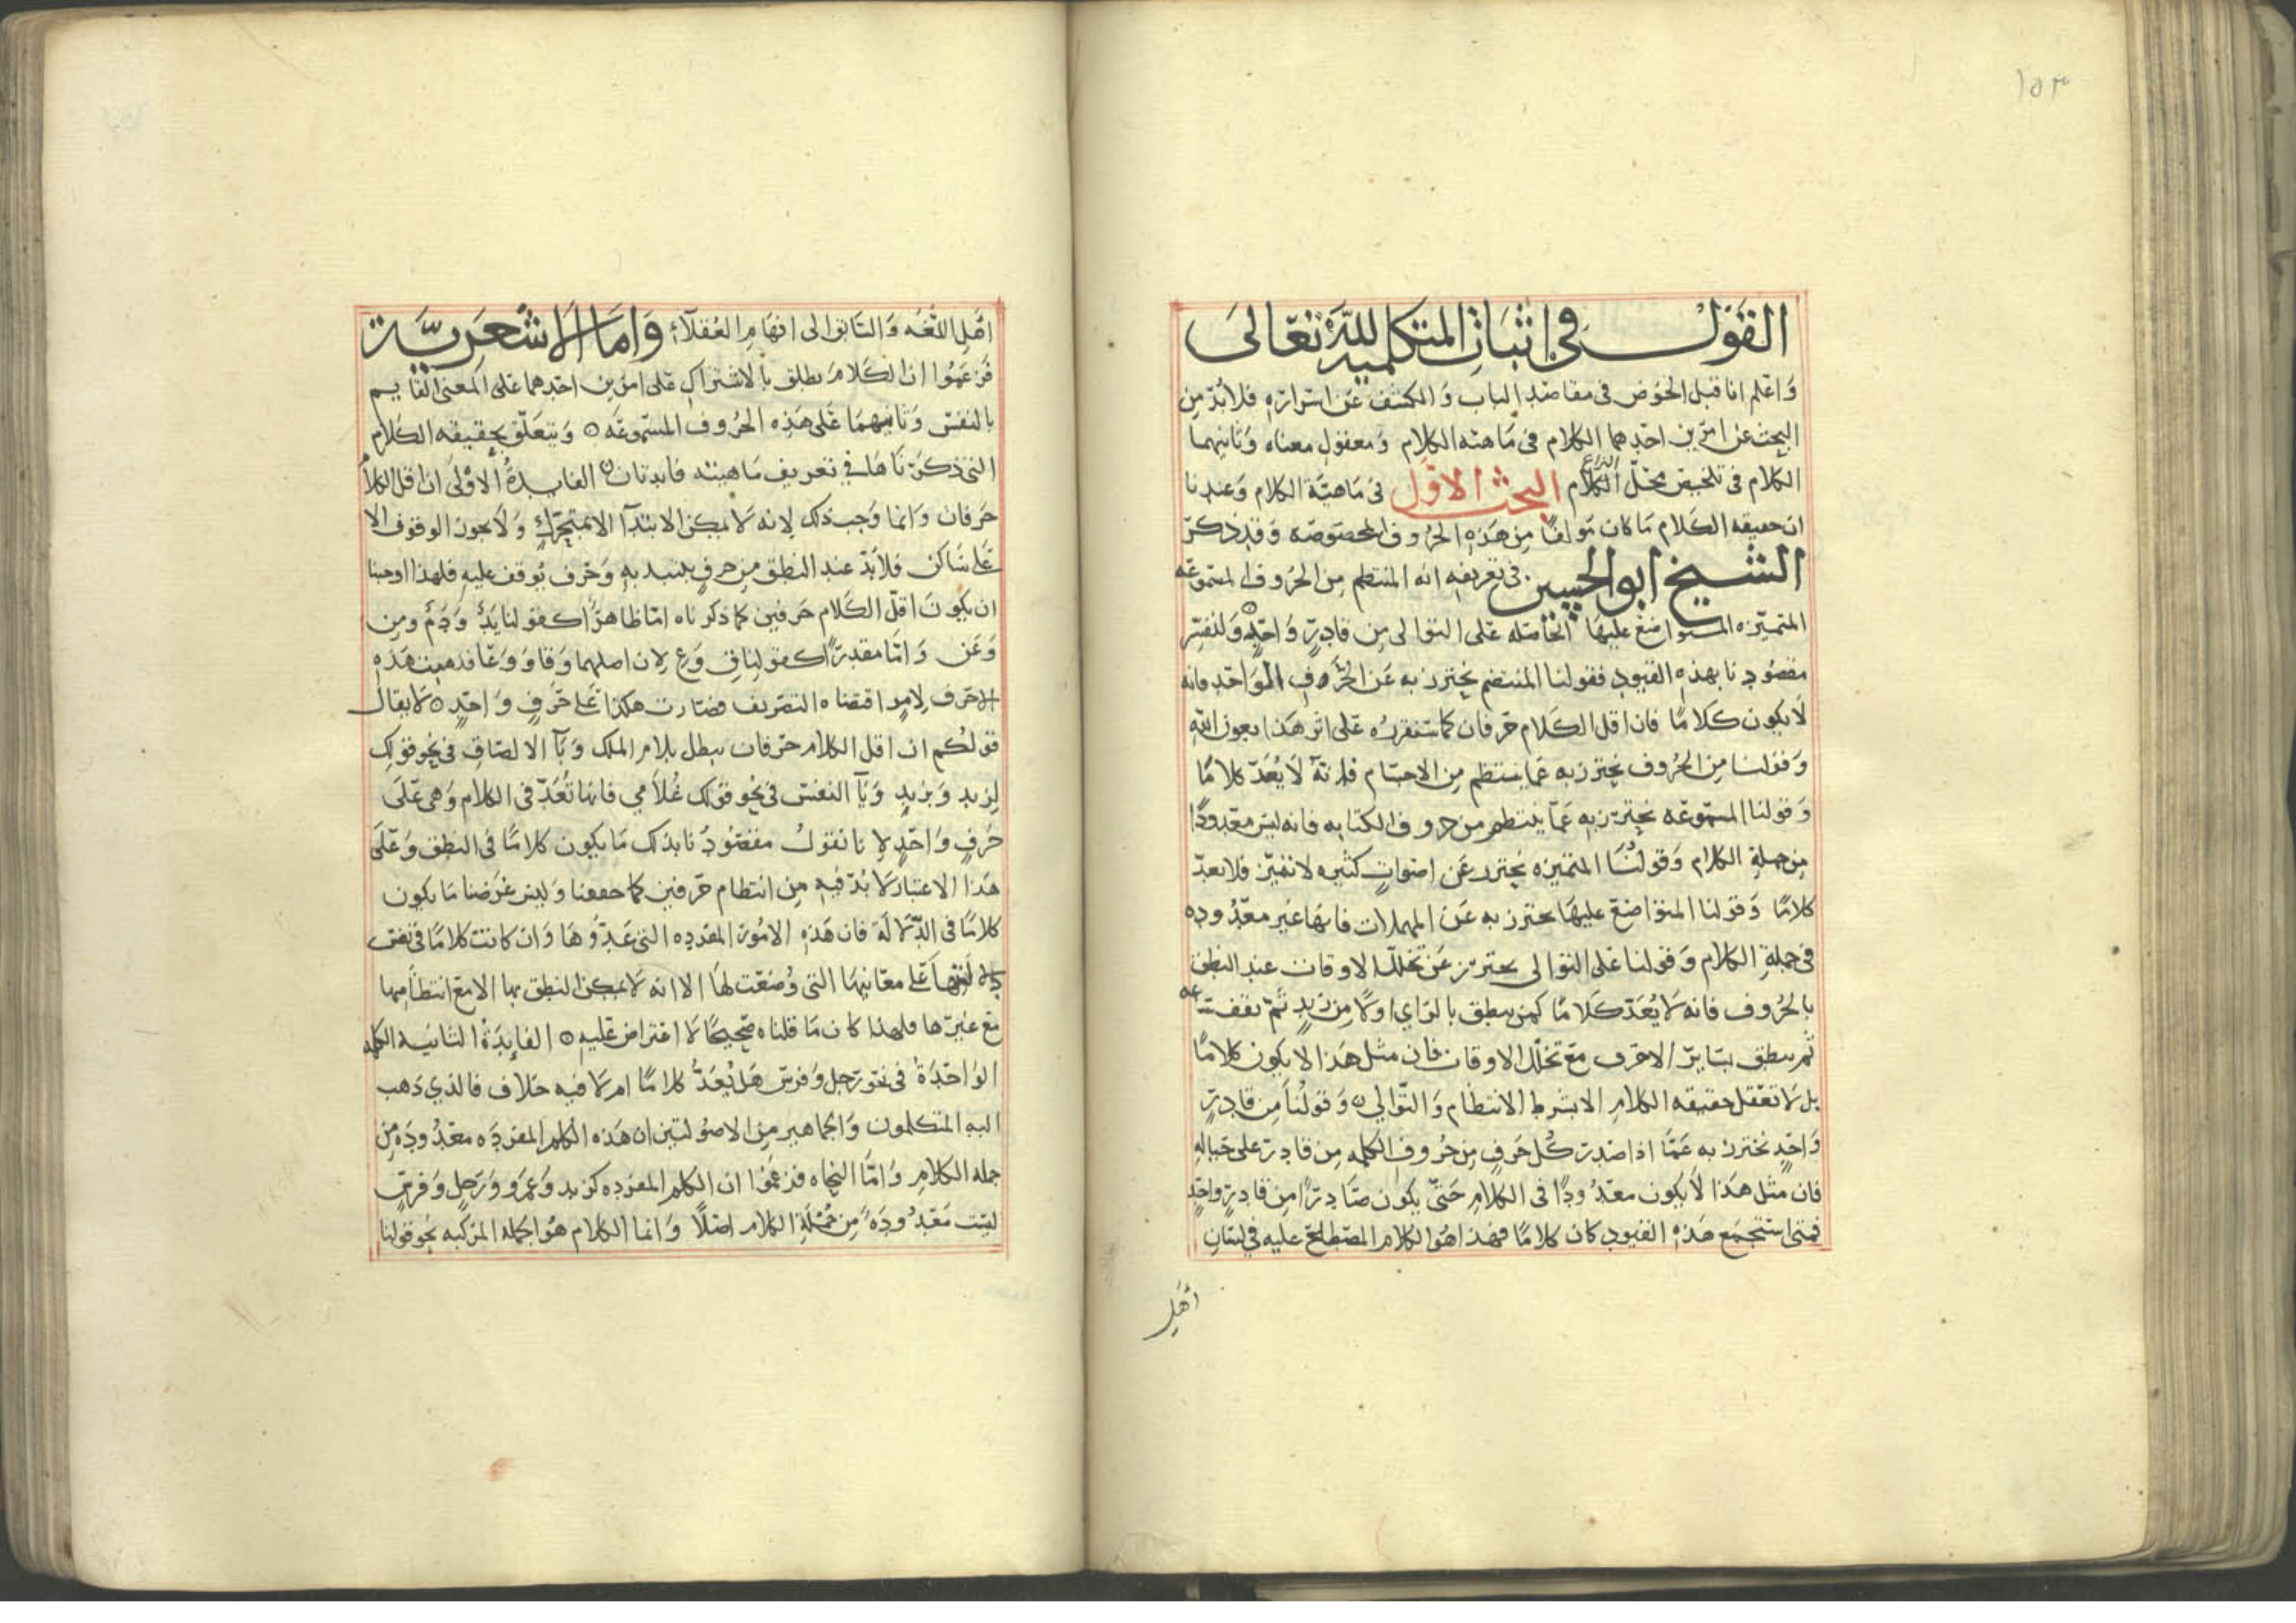 ١٥٣
القول في اثبات المتكلميه لله تعالى
وَاعلم انا قبل الخوض فى مقاصد الباب وَالكشف عَن اسراره فلابُدّ مِن
البحث عن امرين احدهما الكلام فى مَاهيته الكلام وَمعقول معناه وَثانيهما
الكلام فى تلخيص محلّ النزاع الكلام البحث الاوّل فى مَاهيّة الكلام وَعندنا
ان حقيقه الكَلام مَا كان مَولفًا مِن هَذه الحُروف المخصوصَه وَقد ذكرَ
الشيخ ابو الحسين فى تعريفه انه المنتظم مِن الحُروف المسموعَه
المتميّزه المتواضع عليهَا الحَاصله عَلى التوالى مِن قادِرٍ وَاحدٍ وَلنفسّر
مقصُودنا بهذه القيود فقولنا المنتضم يُحترز به عَن الحَرف الوَاحد فانه
لَا يكون كَلامًا فان اقل الكَلام حَرفان كما سَنقررُه عَلى اثر هَذا بعون الله
وَقولنا مِن الحُروف يُحترز به عَمّا ينتظم مِن الاجسَام فانهَ لَا يُعَدّ كلامًا
وَقولنا المسمُوعَه يُحترَز به عَمّا ينتظم من حروف الكتابه فانه ليسَ معدودًا
مِن جملةِ الكلام وَقولنَا المتميزه يُحترز عَن اصوَاتٍ كثيره لا تتميّز فلا تعدّ
كلامًا وَقولنا المتواضع عليهَا يحترز به عَن المهملات فانهَا غير معدُوده
فى جملةِ الكلام وَقولنا عَلى التوالى يحترز عَن تخلل الاوقات عند النطق
بالحُروف فانه لَا يُعَدّ كَلامًا كمن ينطق بالزاي اولًا مِن زيدٍ ثم يقف سَاعه
ثم ينطق بسَايرِ الاحرف مَع تخلّل الاوقات فان مثل هَذا لا يكون كلامًا
بل لَا تعقل حقيقه الكلام الا بشرط الانتظام وَالتوّالي وَقولُنَا مِن قادِرٍ
وَاحدٍ نحترز به عَمّا اذا صَدر كُل حَرفٍ مِن حُروف الكلمه مِن قادِر على حياله
فان مثل هَذا لَا يكون معدُودًا فى الكلام حَتىّ يكون صَادِرًا مِن قادِرٍ وَاحدٍ
فمتى استجمَع هَذه القيود كان كلامًا فهذا هُوَ الكلام المصطلح عليه فى لسَان
أهَل
اهَل اللغه وَالسَابق الى افهَام العُقلاءِ وَامَا الاشعَريَّة
فزعَموا ان الكَلامَ يطلق بالاشتراك عَلى امرين احدهما عَلى المعنى القايم
بالنفسَ وَثانيهمَا عَلى هَذه الحُروف المسمُوعَه ٥ وَيتعَلق بحقيقه الكَلام
التى ذكرناهَا في تعريف مَاهيته فايدتان الفايدةُ الاوْلى ان اقل الكلام
حَرفان وَانما وَجب ذلك لانه لَا يمكن الابتدآ الا بمتحَرّكٍ وَلا يجوز الوقوف الا
عَلى سَاكن فلابُدّ عند النطق مِن حرفٍ يبتدا به وَحرف يُوقف عليه فلهذا اوجبنا
ان يكونَ اقلّ الكَلام حَرفين كما ذكرناه امّا ظاهرًا كقولنا يَدٌ وَدَمٌ ومِن
وَعَن وَامّا مقدرًا كقولنا قِ وَعِ لان اصلهما وَقا وَوَعَا فذهبت هَذه
الاحرف لامرٍ اقتضاه التصريف فصَارت هكذا عَلى حَرفٍ وَاحدٍ ٥ لَا يقال
قولكُم ان اقل الكلام حَرفان يبطل بلام الملك وَبآ الالصَاق فى نحو قولك
لزيدٍ وَبزيدٍ وَيَآ النفس فى نحو قولك غُلاَمي فانهَا تُعَدّ فى الكلام وَهى عَلى
حَرفٍ وَاحدٍ لانا نقولُ مقصُودُنا بذلك مَا يكون كلامًا فى النطق وَعَلى
هَذا الاعتبار لَا بُدّ فيه مِن انتظام حَرفين كما حققنا وَليس غرَضنا مَا يكون
كلامًا فى الدّلالة فان هَذه الامُور المفرده التى عَدّوُهَا وَان كانت كلامًا فى نفسَ
دلالتهَا عَلى معَانيهَا التى وُضعَت لهَا الا انه لَا يمكن النطق بها الا مَع انتظامِها
مَع غيرها فلهذا كان مَا قلناه صَحيحًا لَا اعتراض عَليه ٥ الفايدَةُ الثانيه الكلمه
الوَاحدَة فى نحو رَجل وَفرس هَل يُعَدُّ كلامًا ام لَا فيه خلاف فالذي ذهب
اليه المتكلمون وَالجماهير مِن الاصُوليين ان هَذه الكلم المفردَه معدُودَه مِن
جمله الكلام وَامّا النحاه فزعَموا ان الكلم المفرده كزيد وَعمرو وَرَجلٍ وَفرسٍ
ليسَت مَعدُودَهً مِن جُملَةِ الكلام اصلًا وَانما الكلام هُوَ الجمله المركبه نحو قولنا